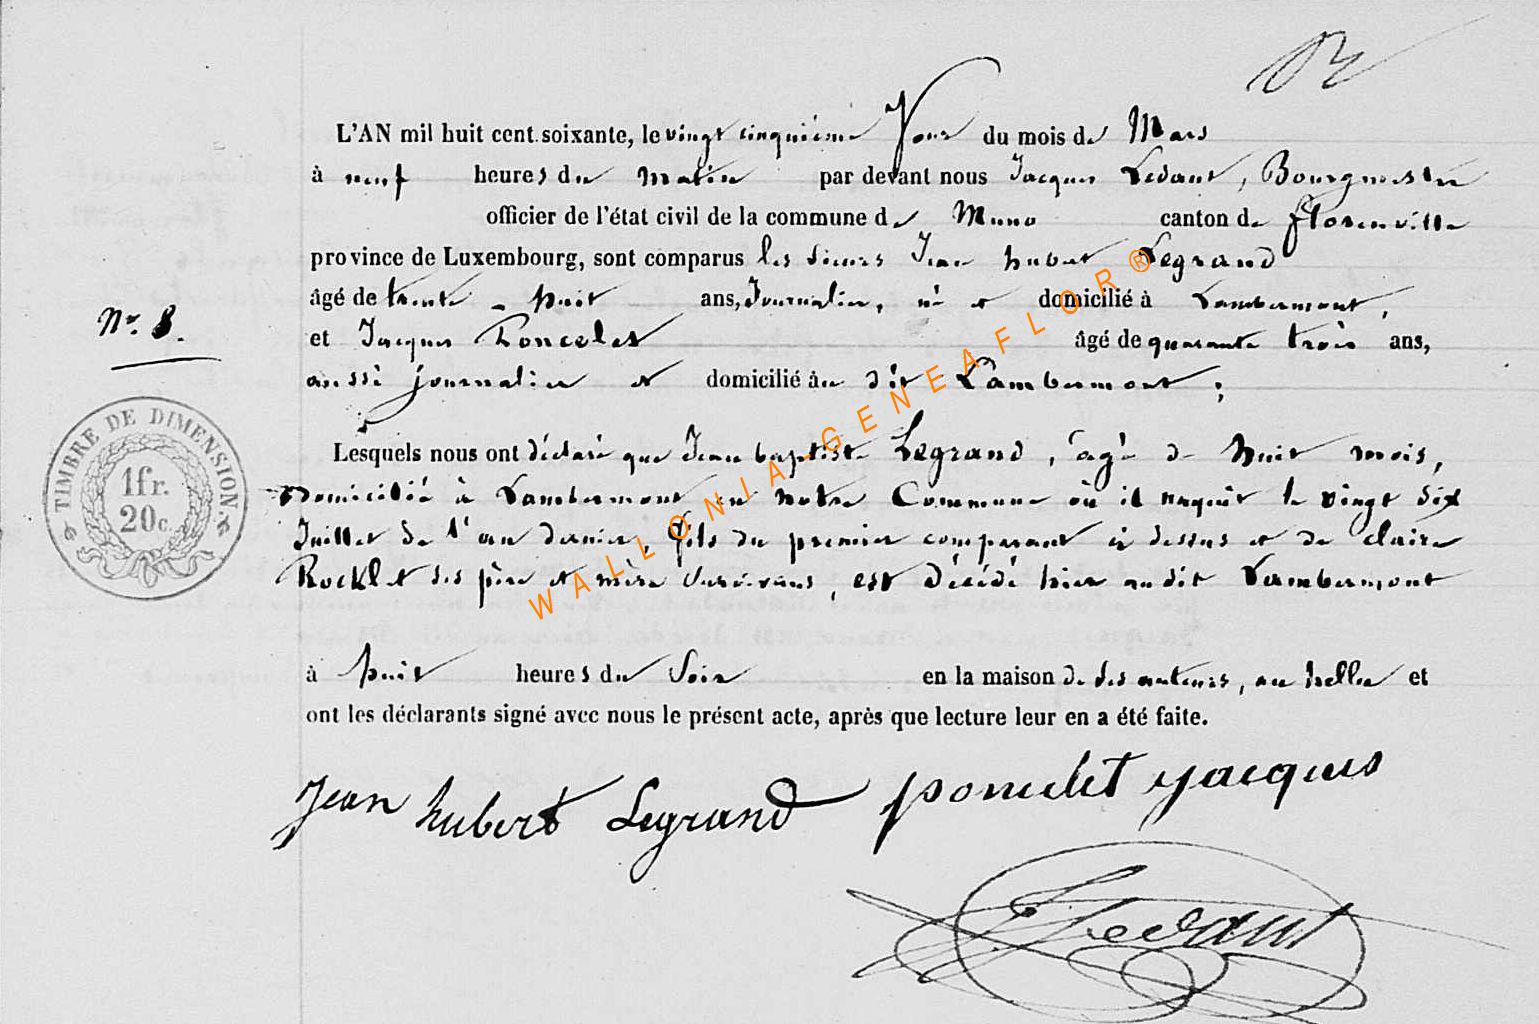 L'AN mil huit cent soixante, le vingt cinquième Jour du mois de Mars
à neuf heures du matin par devant nous Jacques Ledant, Bourgmestre
officier de l'état civil de la commune de Muno canton de florenville
province de Luxembourg, sont comparus les sieurs Jean hubert Legrand
âgé de trente-huit ans, Journalier, né et domicilié à Lambermont,
Nº. 8.
et Jacques Poncelet âgé de quarante trois ans,
aussi journalier et domicilié au dit Lambermont;
Lesquels nous ont déclaré que Jean baptiste Legrand, âgé de huit mois,
domicilié à Lambermont en notre Commune où il naquit le vingt six
Juillet de l'an dernier, fils du premier comparant ci dessus et de claire
Rocklet ses père et mère survivans, est décédé hier audit Lambermont
à huit heures du Soir en la maison de ses auteurs, au hellie et
ont les déclarants signé avec nous le présent acte, après que lecture leur en a été faite.
Jean hubert Legrand poncelet jacques
Ledant
TIMBRE DE DIMENSION.
1fr.
20c.
WALLONIA-GENEAFLOR®